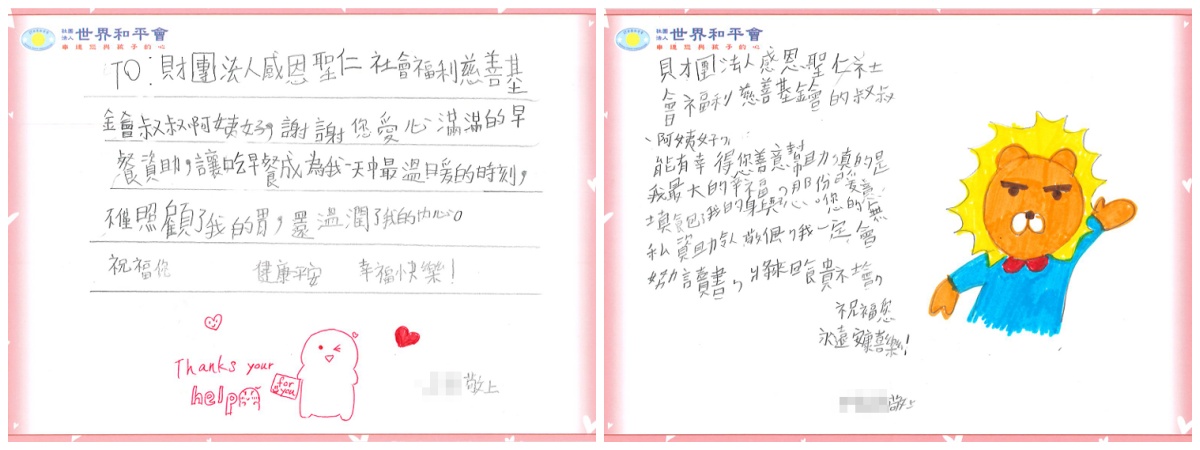 社團法人 世界和平會
串連您與孩子的心
TO:財團法人感恩聖仁社會福利慈善基
金會叔叔啊姨好,謝謝您愛心滿滿的早
餐資助,讓吃早餐成為我一天中最溫暖的時刻,
不僅照顧了我的胃,還溫潤了我的內心。
祝福您 健康平安 幸福快樂!
Thanks your
help
for you
敬上
社團法人 世界和平會
串連您與孩子的心
財團法人感恩聖仁社
會福利慈善基金會的叔叔
、阿姨好,
能有幸得您善意幫助,真的是
我最大的幸福,那份暖意
填飽了我的身與心。您的無
私資助令人敬佩,我一定會
努力讀書,將來回饋社會,
祝福您
永遠安康喜樂!
敬上